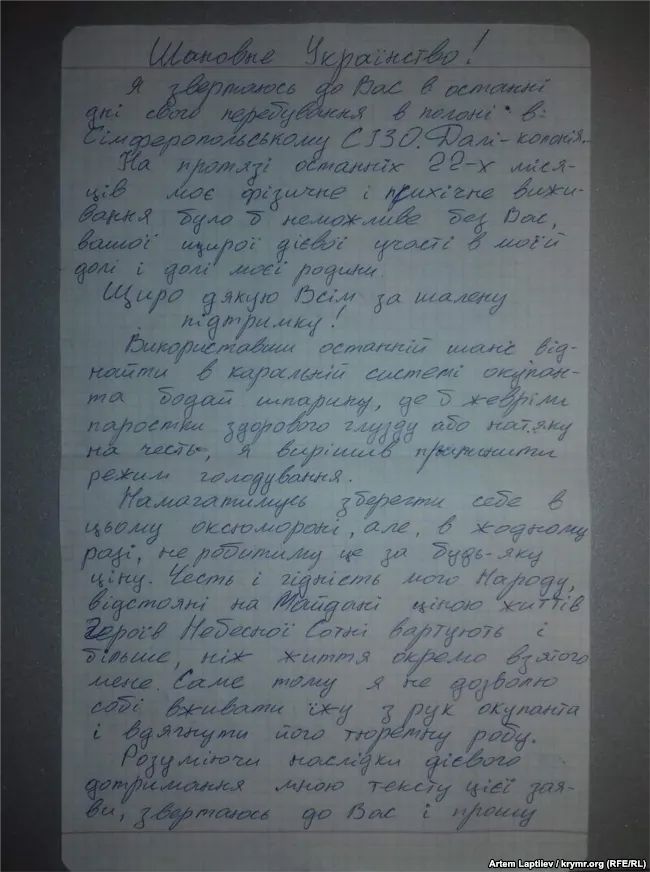 Шановне Українство!
Я звертаюсь до Вас в останні
дні свого перебування в полоні в
Сімферопольському СІЗО. Далі - колонія.
На протязі останніх 22-х міся-
ців моє фізичне і психічне вижи-
вання було б неможливе без Вас,
вашої щирої дієвої участі в моїй
долі і долі моєї родини.
Щиро дякую Всім за шалену
підтримку!
Використавши останній шанс від-
найти в каральній системі окупан-
та бодай шпарину, де б жевріли
паростки здорового глузду або натяку
на честь, я вирішив припинити
режим голодування.
Намагатимусь зберегти себе в
цьому оксюмороні, але, в жодному
разі, не робитиму це за будь-яку
ціну. Честь і гідність мого Народу,
відстояні на Майдані ціною життів
Героїв Небесної Сотні вартують і
більше, ніж життя окремо взятого
мене. Саме тому я не дозволю
собі вживати їжу з рук окупанта
і вдягнути його тюремну робу.
Розуміючи наслідки дієвого
дотримання мною тексту цієї зая-
ви, звертаюсь до Вас і прошу
Artem Laptiiev / krymr.org (RFE/RL)